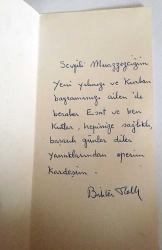 Sevgili Muazzezciğim
Yeni yılınızı ve Kurban
bayramınızı ailen'de
beraber Esat ve ben
Kutlar, hepinize sağlıklı,
başarılı günler diler
yanaklarından öperim
kardeşim.